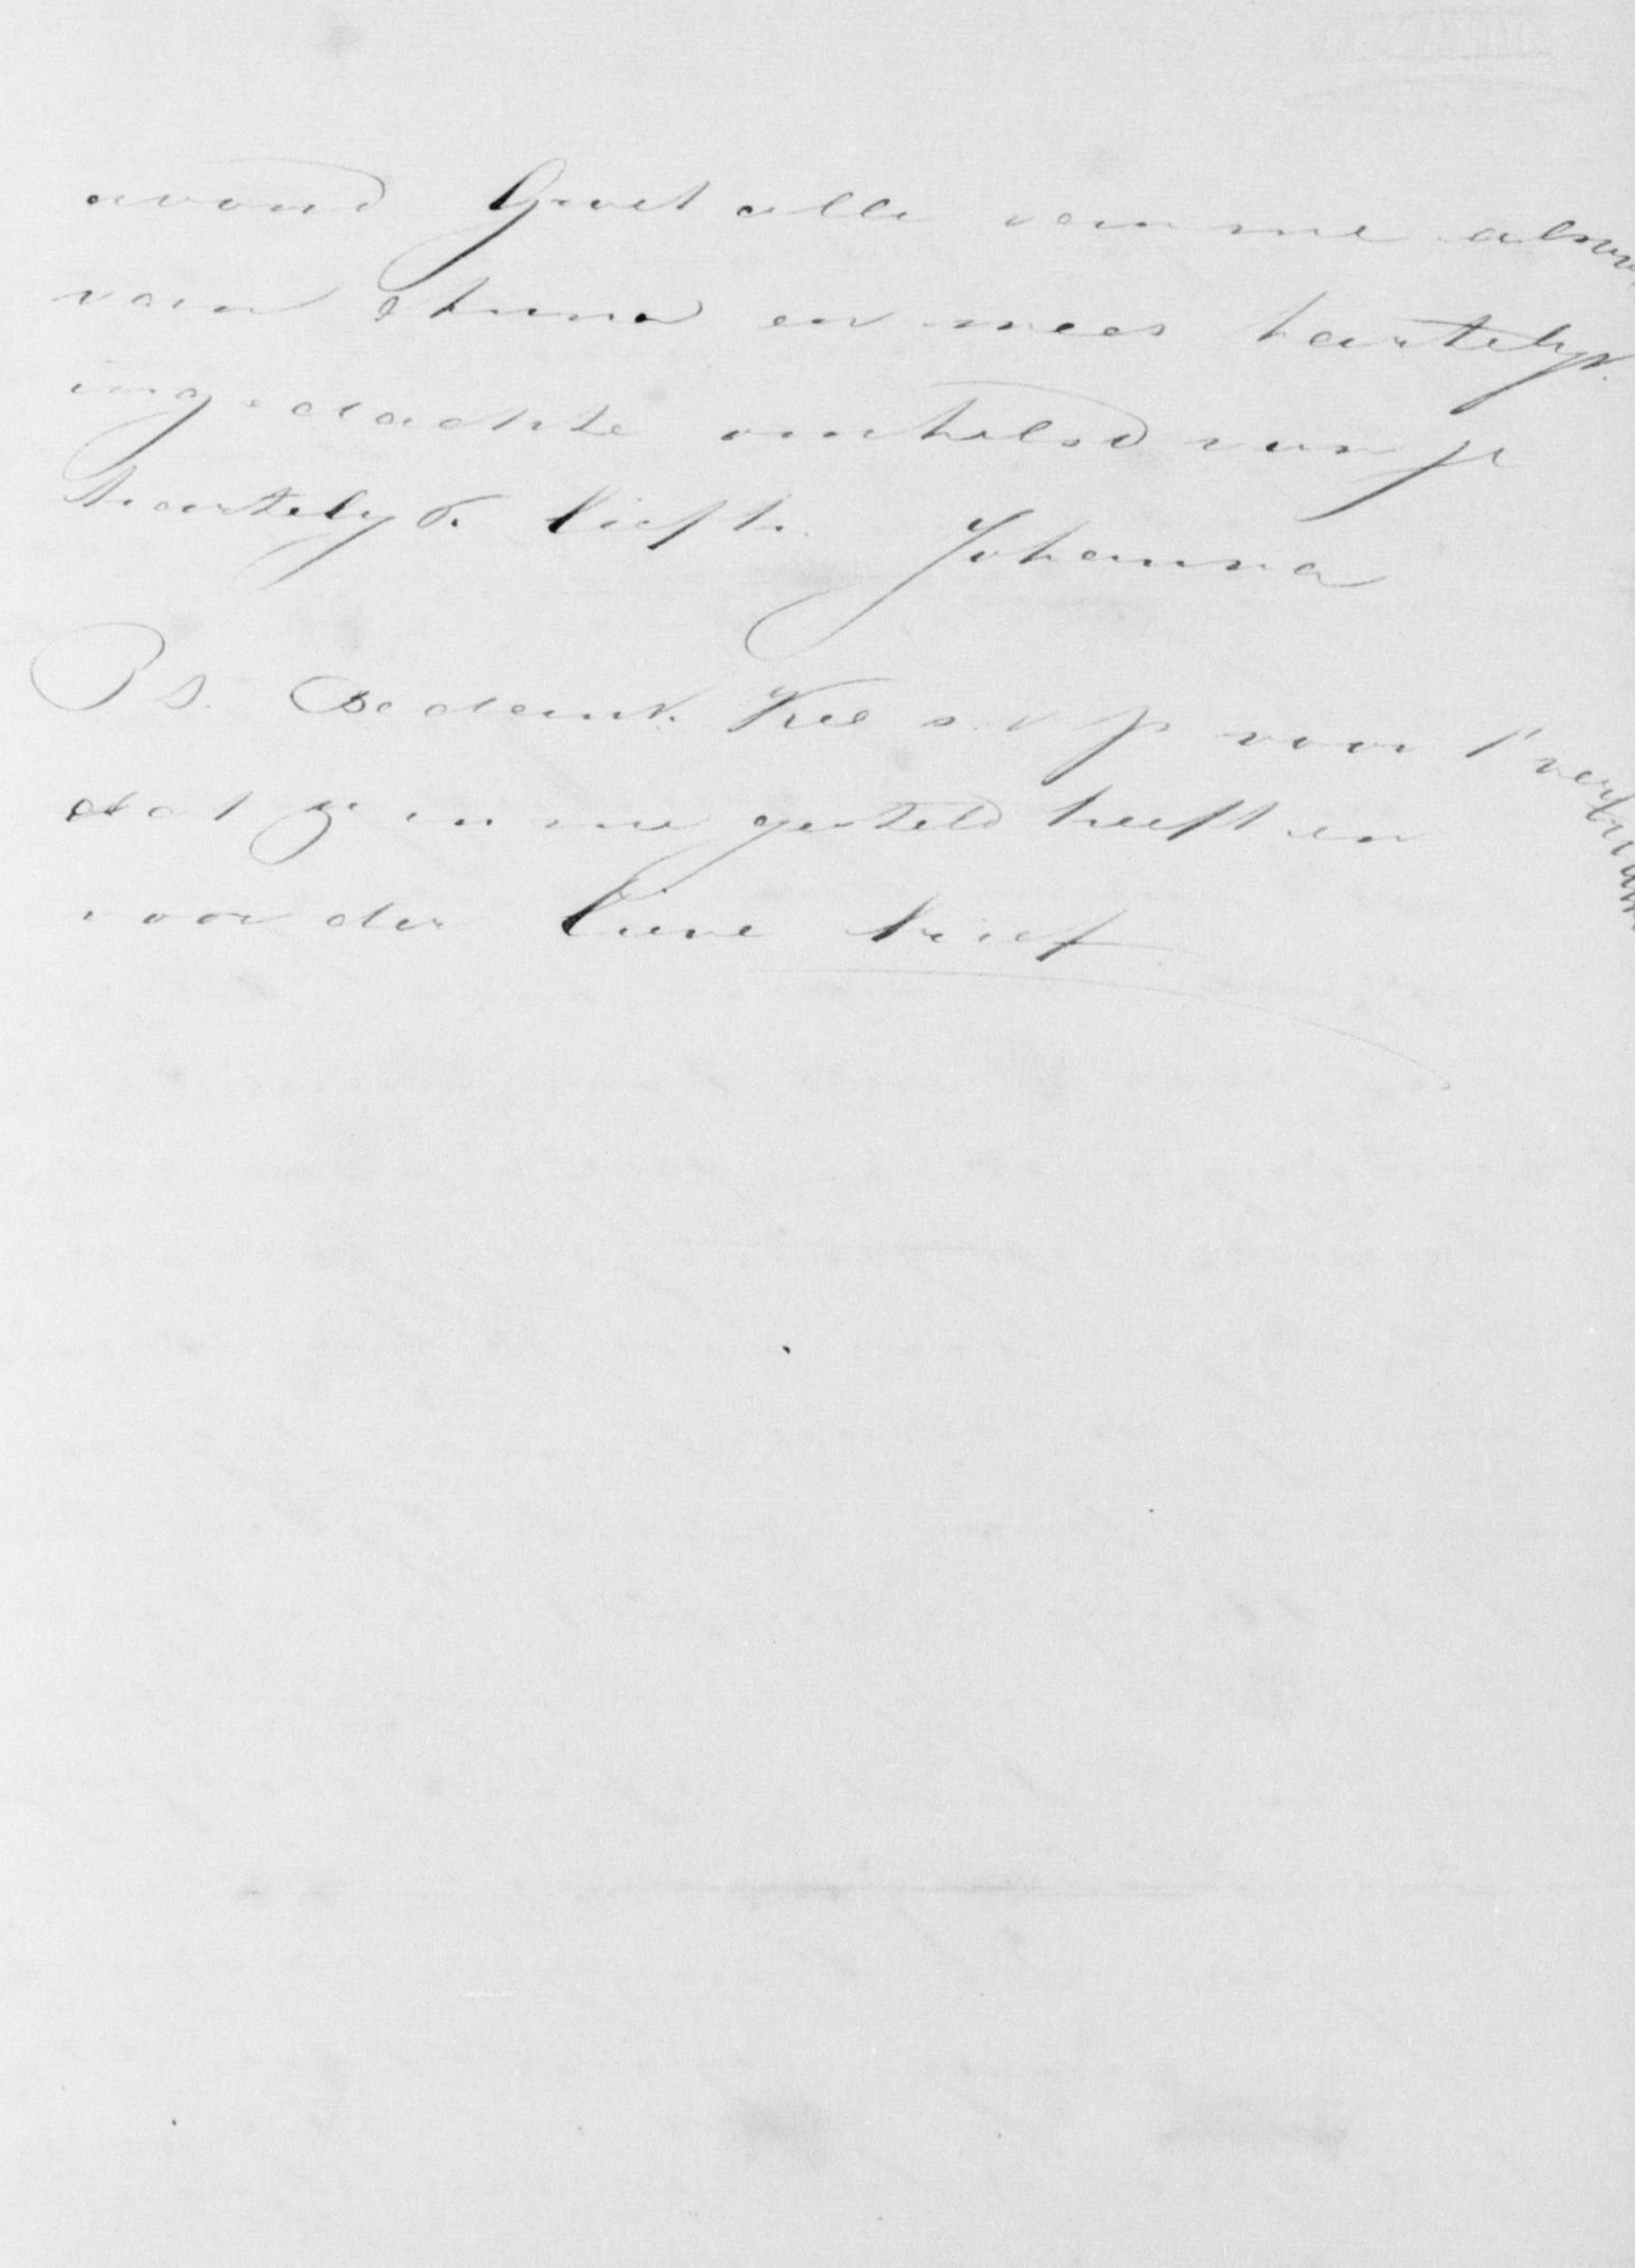 avond Groet alle van me alsmede
van Anna en wees hartelijk
in gedachte omhelsd van je
hartelijk liefh. Johanna
Ps. Bedank Kee s.v.p voor 't vertrouwen
dat zij in me gesteld heeft en
voor der lieve brief